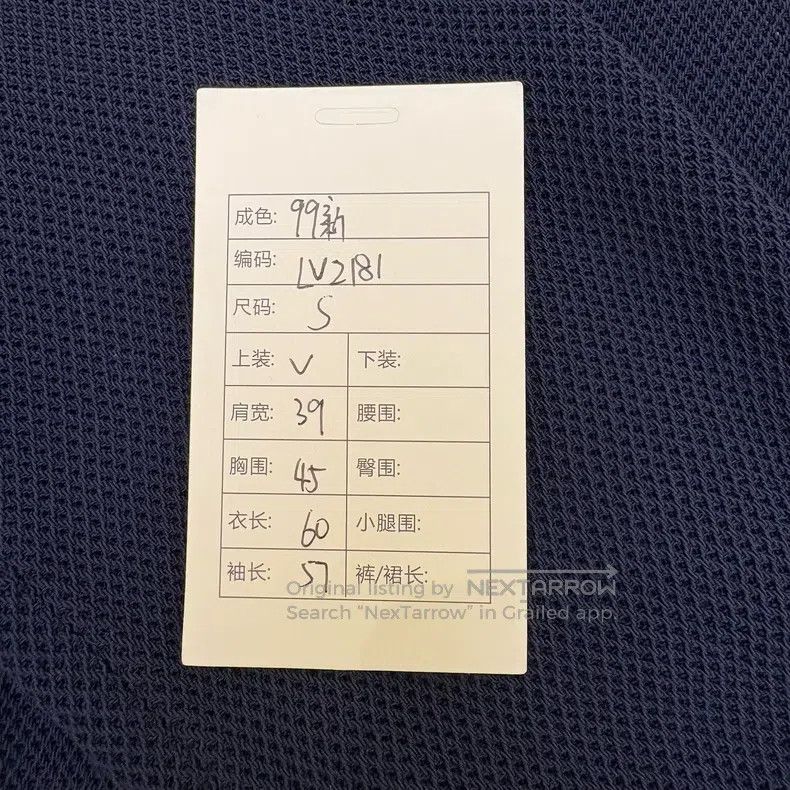 成色: 99新
编码: LV2181
尺码: S
上装: V 下装:
肩宽: 39 腰围:
胸围: 45 臀围:
衣长: 60 小腿围:
袖长: 57 裤/裙长:
Original listing by NEXTARROW
Search "NexTarrow" in Grailed app.